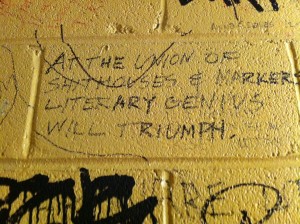 AT THE UNION OF
SHITHOUSES & MARKERS
LITERARY GENIUS
WILL TRIUMPH.